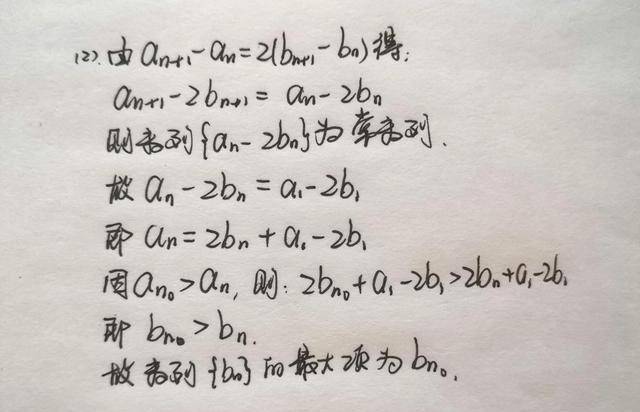 (2). 由 aₙ₊₁-aₙ=2(bₙ₊₁-bₙ)得:
aₙ₊₁-2bₙ₊₁= aₙ-2bₙ
则数列{aₙ-2bₙ}为常数列.
故 aₙ-2bₙ=a₁-2b₁
即 aₙ=2bₙ+a₁-2b₁
因aₙ₀>aₙ, 则: 2bₙ₀+a₁-2b₁>2bₙ+a₁-2b₁
即 bₙ₀>bₙ.
故数列{bₙ}的最大项为bₙ₀.